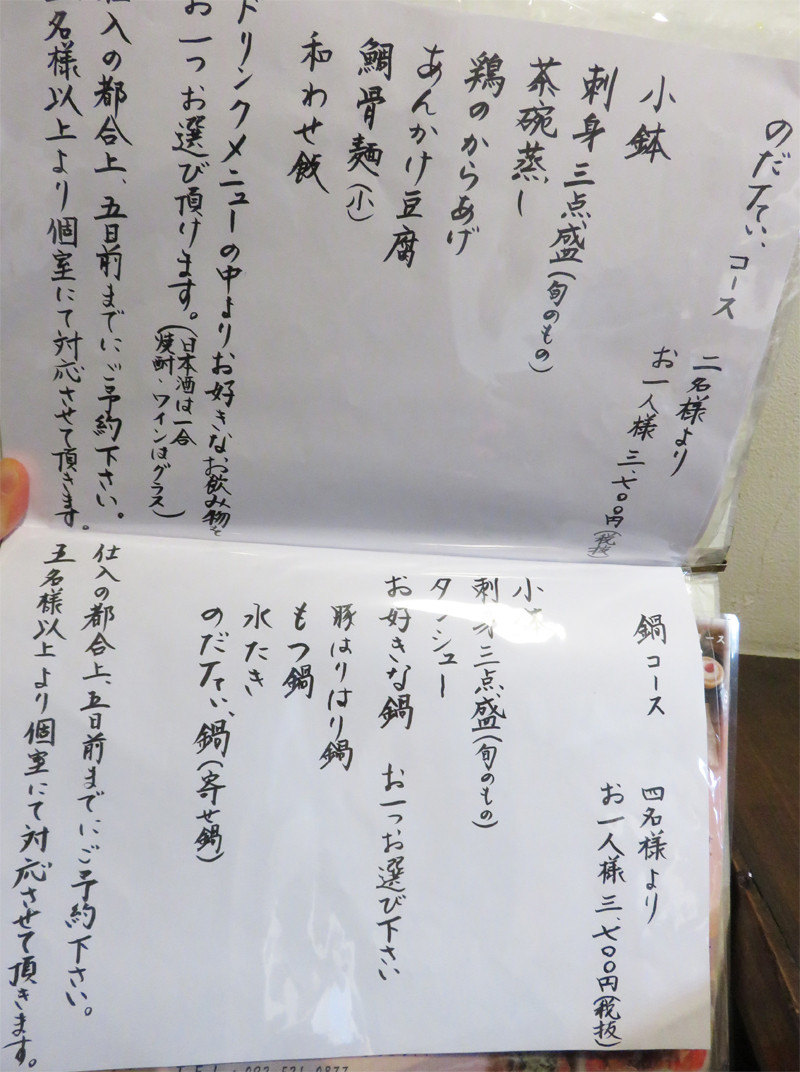 のだてぃ コース
二名様より
お一人様 三、七〇〇円(税抜)
小鉢
刺身三点盛(旬のもの)
茶碗蒸し
鶏のからあげ
あんかけ豆腐
鯛骨麺(小)
和わせ飯
ドリンクメニューの中よりお好きなお飲み物を
お一つお選び頂けます。(日本酒は一合
焼酎・ワインはグラス)
仕入の都合上、五日前までにご予約下さい。
五名様以上より個室にて対応させて頂きます。
鍋コース
四名様より
お一人様 三、七〇〇円(税抜)
小鉢
刺身三点盛(旬のもの)
タンシュー
お好きな鍋 お一つお選び下さい
豚はりはり鍋
もつ鍋
水たき
のだてぃ鍋(寄せ鍋)
仕入の都合上、五日前までにご予約下さい。
五名様以上より個室にて対応させて頂きます。